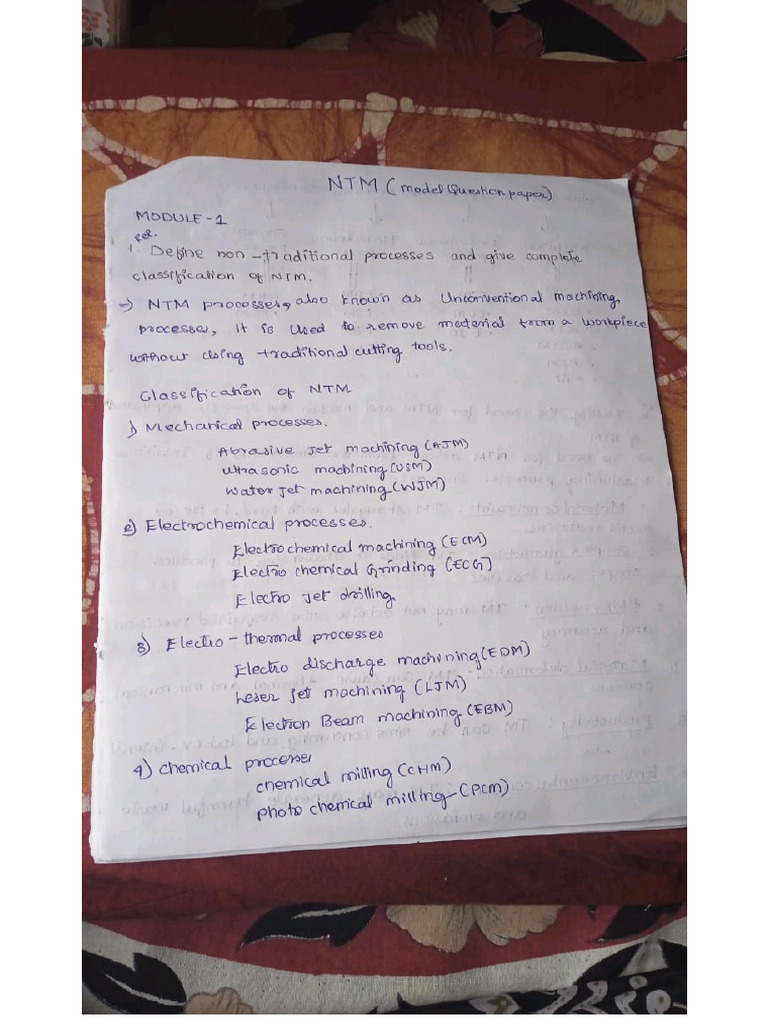 NTM (model Question paper)
MODULE-1
1. Define non-traditional processes and give complete
classification of NTM.
→ NTM processes, also known as Unconventional machining
processes, it is used to remove material from a workpiece
without using traditional cutting tools.
Classification of NTM
1) Mechanical processes.
Abrasive jet machining (AJM)
ultrasonic machining (USM)
water jet machining (WJM)
2) Electrochemical processes.
Electrochemical machining (ECM)
Electro chemical Grinding (ECG)
Electro jet drilling.
3) Electro-thermal processes
Electro discharge machining (EDM)
Leser jet machining (LJM)
Electron Beam machining (EBM)
4) chemical processes
chemical milling (CHM)
photo chemical milling-(PCM)